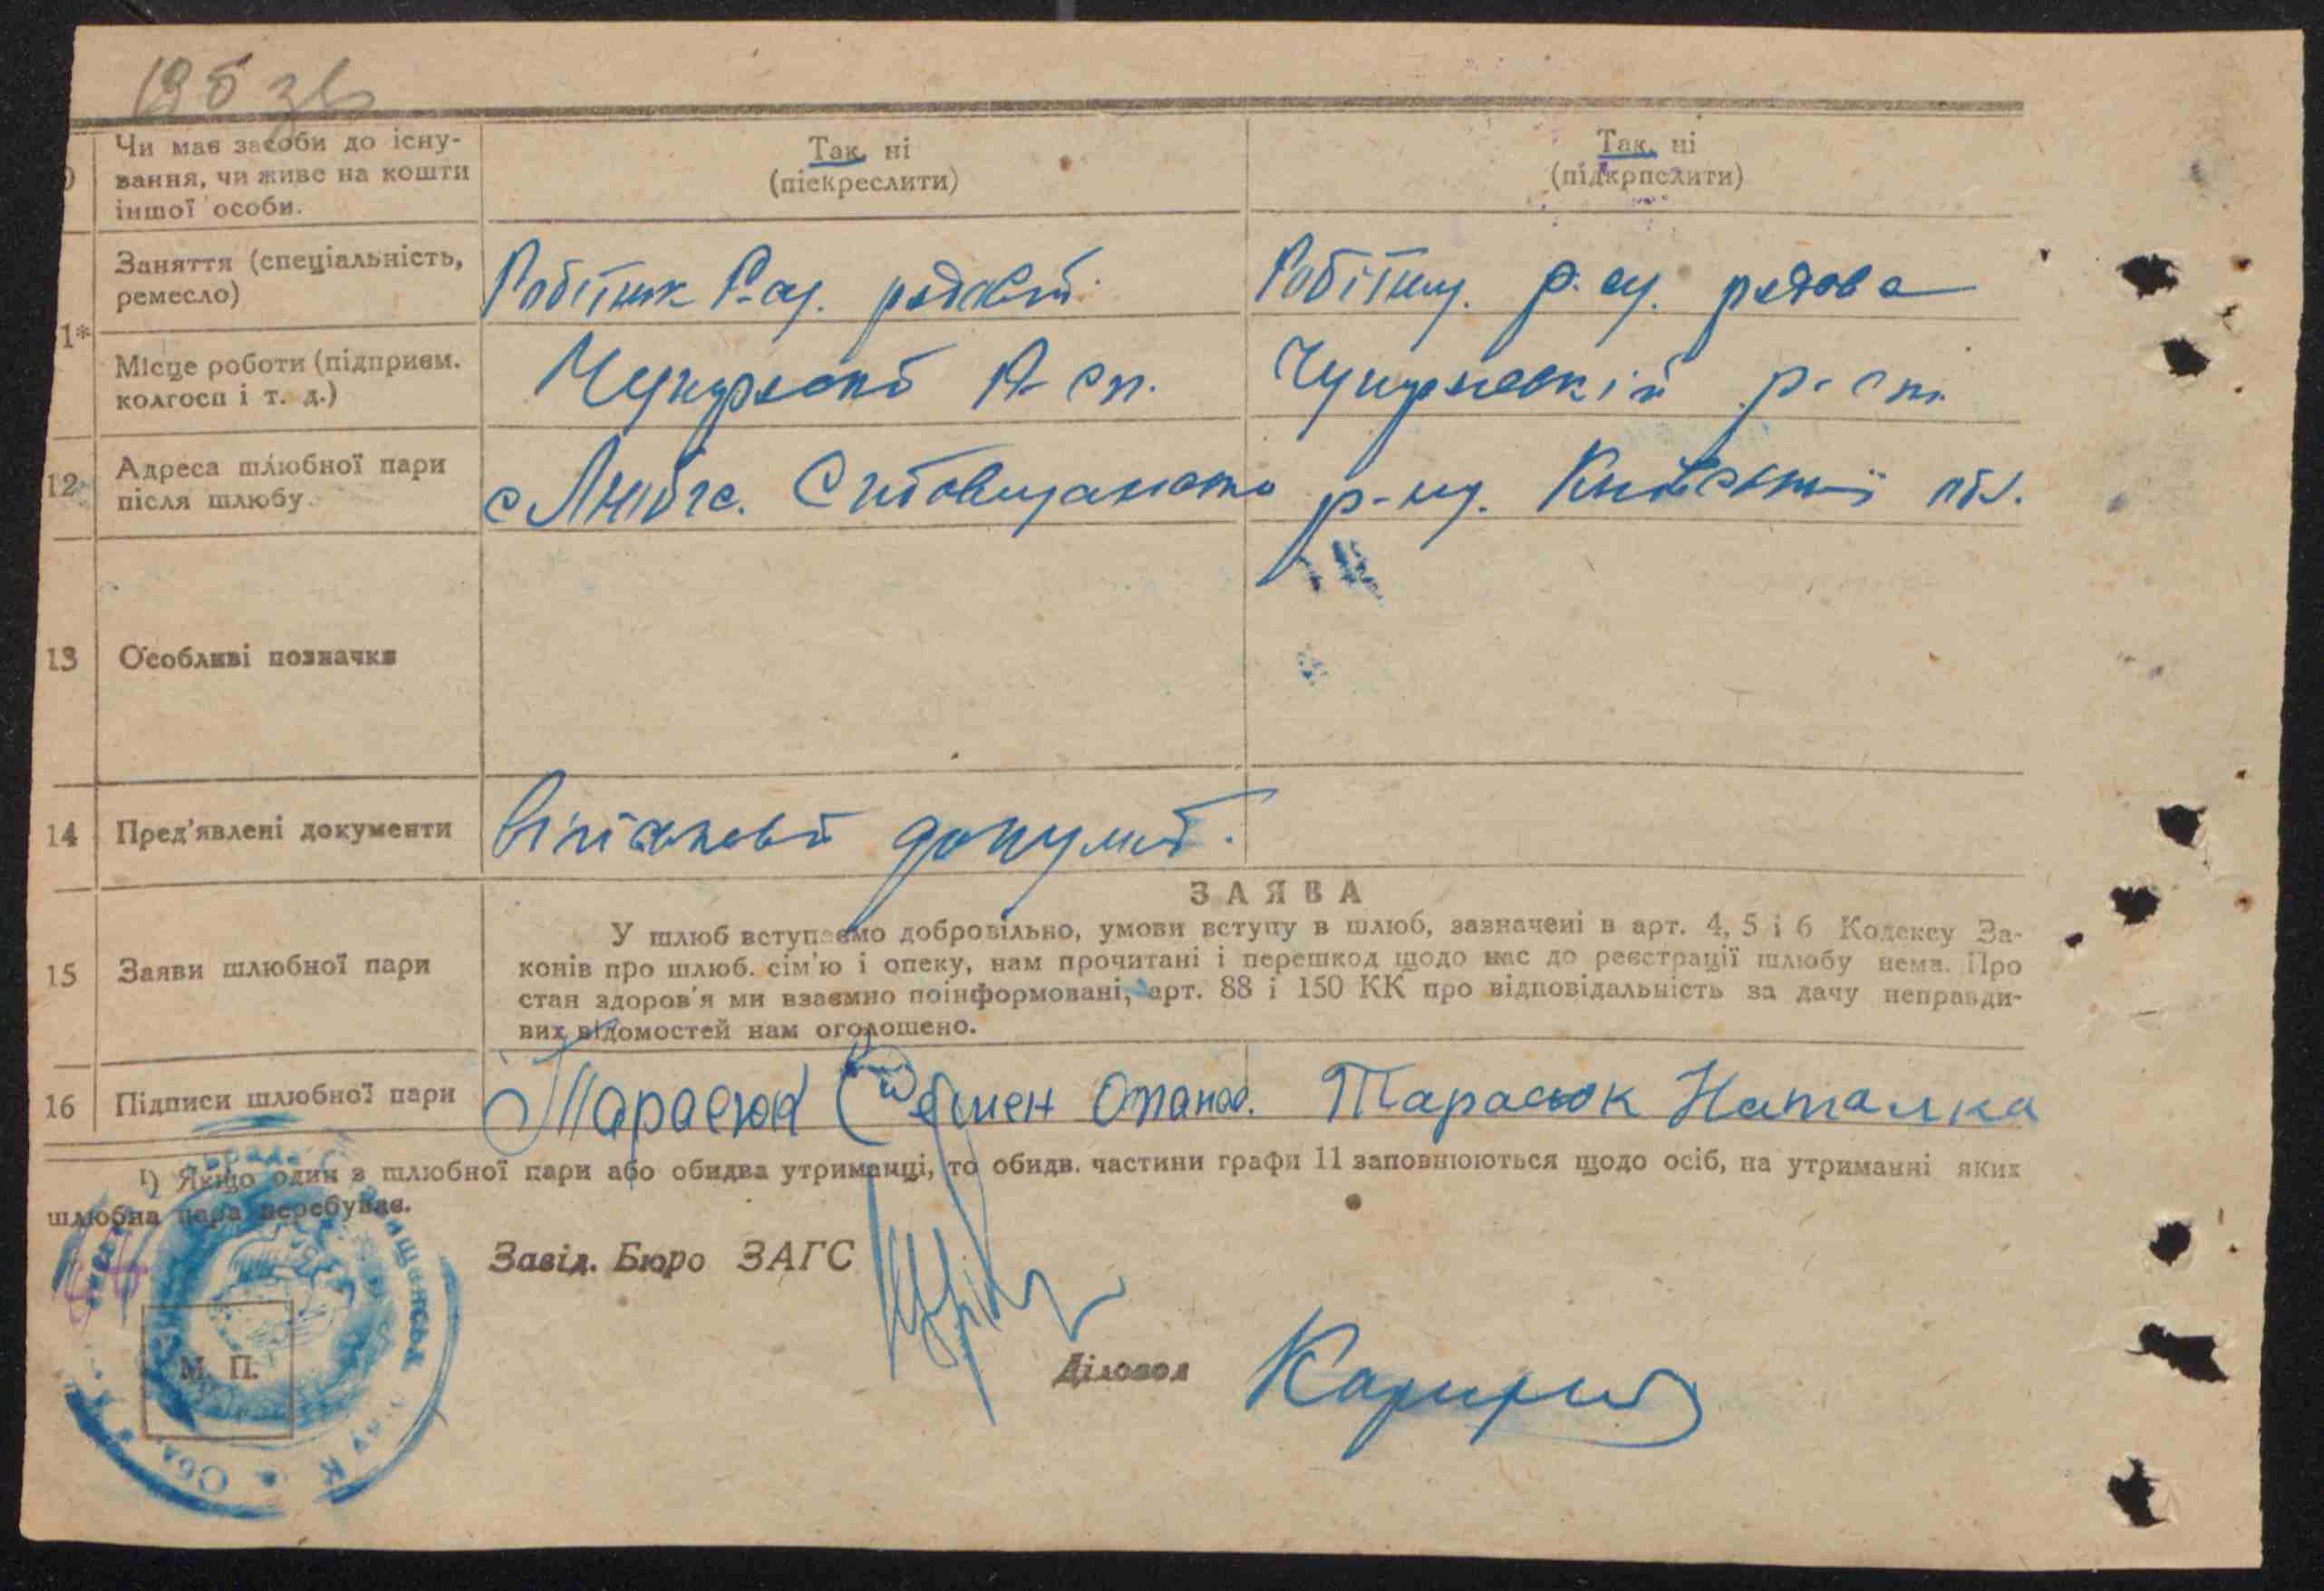 195 зв
Чи має засоби до існу-
вання, чи живе на кошти
іншої особи.
Так, ні
(піскреслити)
Так, ні
(підкрпслити)
Заняття (спеціальність,
ремесло)
Робітник рядовий
Робітниц. рядова
1*
Місце роботи (підприєм.
колгосп і т. д.)
р-сп.
р-сп.
12
Адреса шлюбної пари
після шлюбу.
с р-ну. Київської обл.
13
Особливі позначки
14
Пред'явлені документи
Військовий докумнт.
15
Заяви шлюбної пари
ЗАЯВА
У шлюб вступаємо добровільно, умови вступу в шлюб, зазначені в арт. 4, 5 і 6 Кодексу За-
конів про шлюб. сім'ю і опеку, нам прочитані і перешкод щодо нас до реєстрації шлюбу нема. Про
стан здоров'я ми взаємно поінформовані, арт. 88 і 150 КК про відповідальність за дачу неправди-
вих відомостей нам оголошено.
16
Підписи шлюбної пари
Тарасюк Семен Опанас. Тарасюк Наталка
¹) Якщо один з шлюбної пари або обидва утриманці, то обидв. частини графи 11 заповнюються щодо осіб, на утриманні яких
шлюбна пара перебуває.
Завід. Бюро ЗАГС
Діловод
М. П.